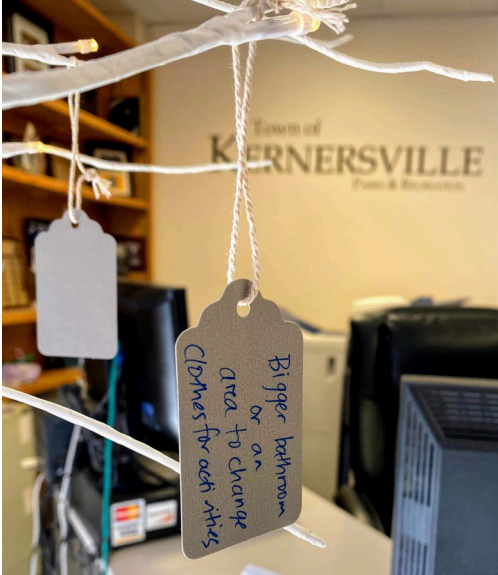 Town of
KERNERSVILLE
Parks & Recreation
Bigger bathroom
or an
area to change
Clothes for activities